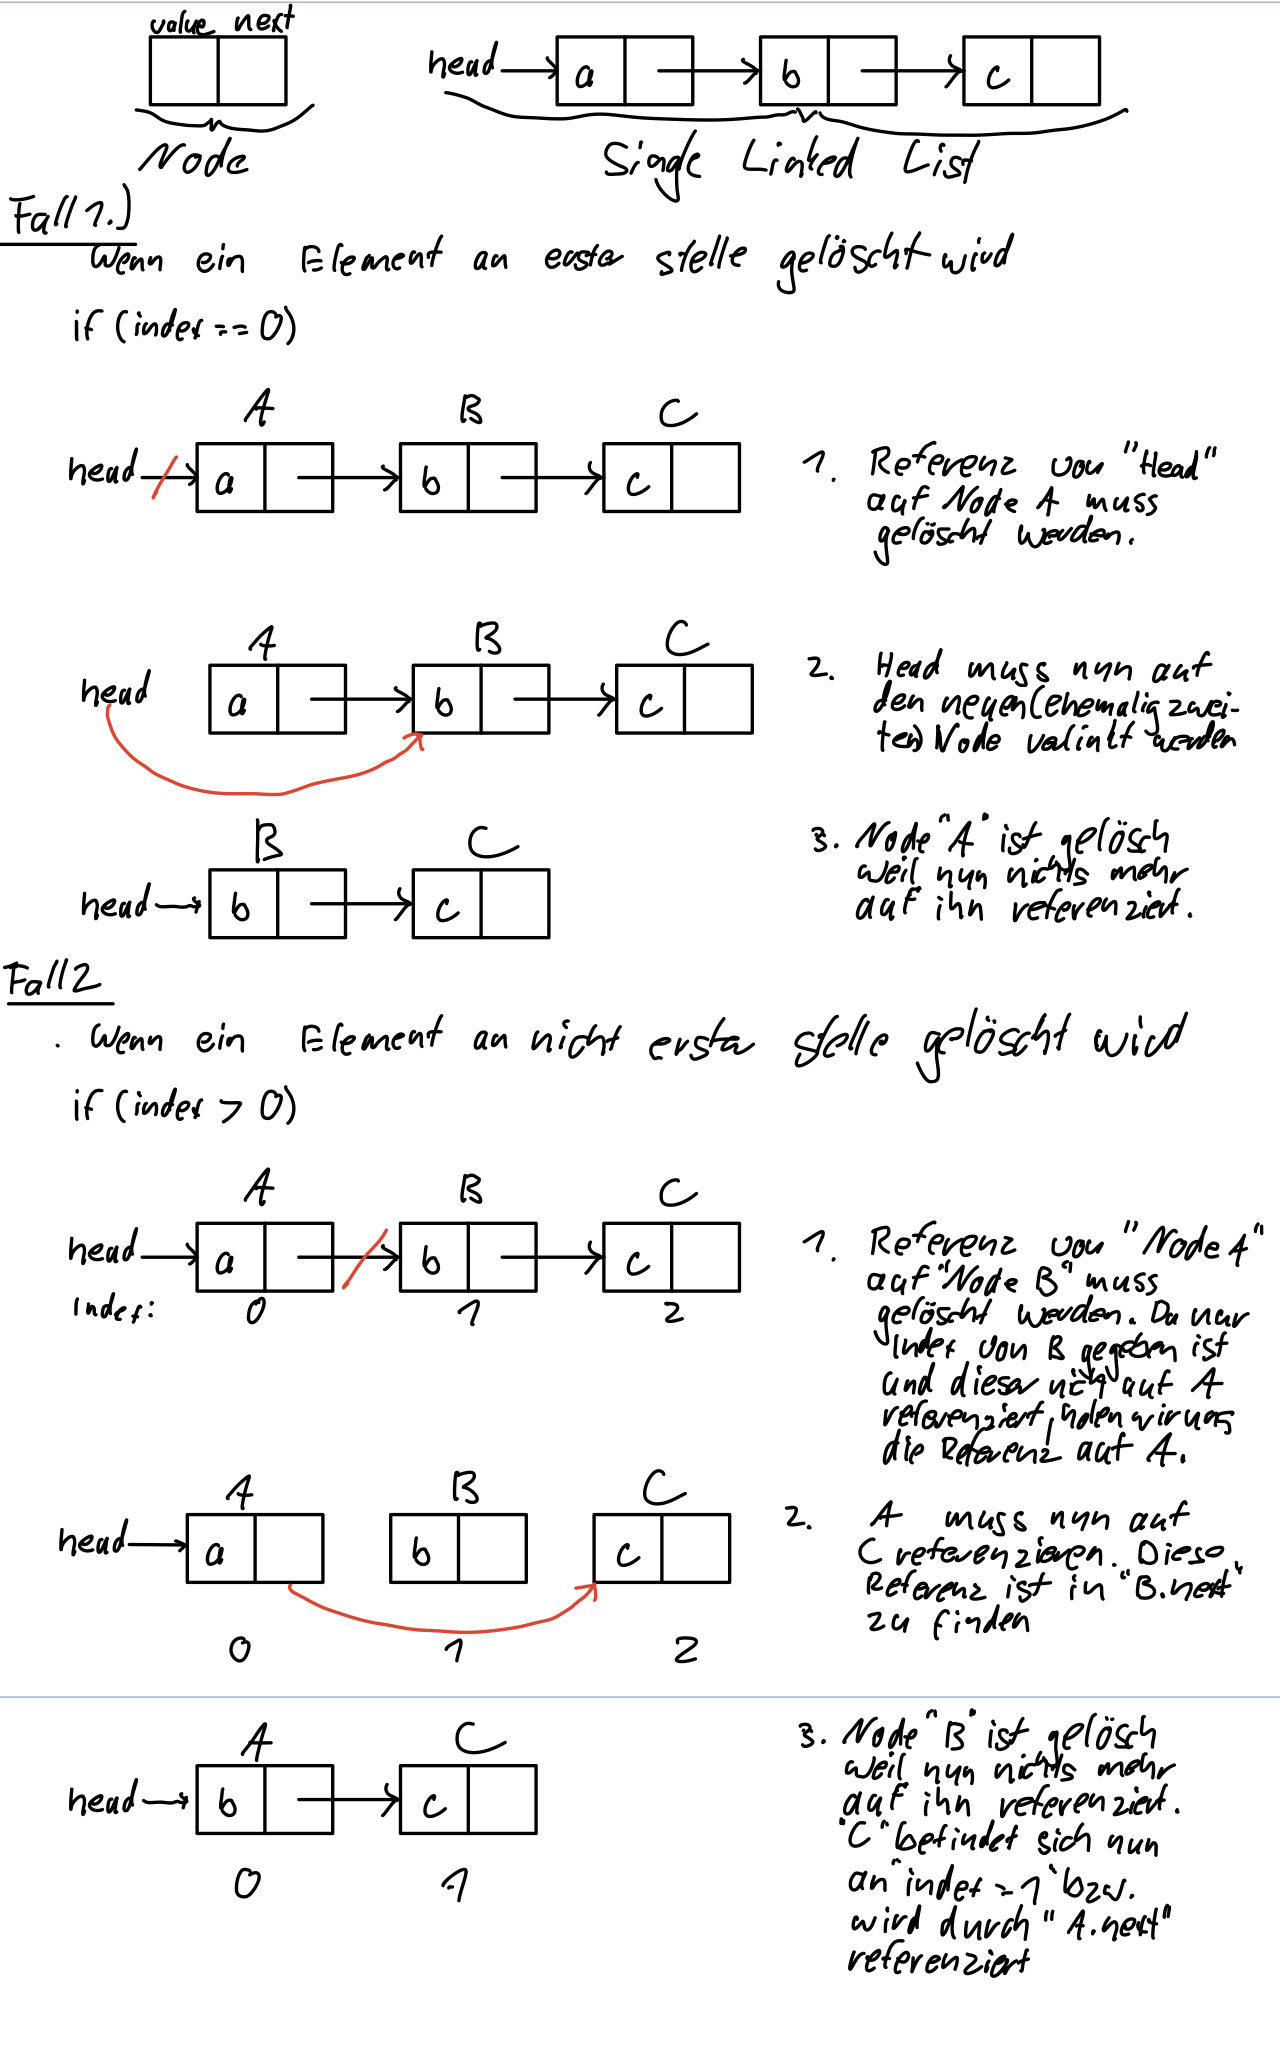 value next
head a b c
Node
Single Linked List
Fall 1.)
Wenn ein Element an erste stelle gelöscht wird
if (index == 0)
A B C
head a b c
1. Referenz von "Head"
auf Node A muss
gelöscht werden.
A B C
head a b c
2. Head muss nun auf
den neuen (ehemalig zwei-
ten) Node verlinkt werden
B C
head b c
3. Node "A" ist gelösch
weil nun nichts mehr
auf ihn referenziert.
Fall 2
. Wenn ein Element an nicht erste stelle gelöscht wird
if (index > 0)
A B C
head a b c
Index: 0 1 2
1. Referenz von "Node A"
auf "Node B" muss
gelöscht werden. Da nur
Index von B gegeben ist
und dieser nich auf A
referenziert, holen wir uns
die Referenz auf A.
A B C
head a b c
0 1 2
2. A muss nun auf
C referenzieren. Diese
Referenz ist in "B.next"
zu finden
A C
head b c
0 1
3. Node "B" ist gelösch
weil nun nichts mehr
auf ihn referenziert.
"C" befindet sich nun
an "index = 1" bzw.
wird durch "A.next"
referenziert